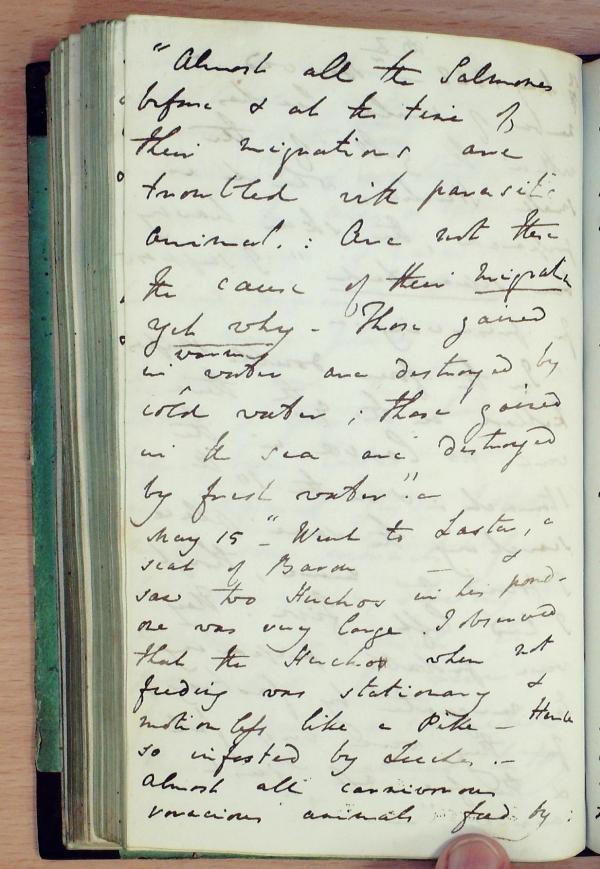 "Almost all the Salmones
before & at the time of
their migrations are
troubled with parasitic
animal. : Are not these
the cause of their migrat
yet why - Those gained
warm
in water are destroyed by
cold water ; those gained
in the sea are destroyed
by fresh water".
May 15 - "Went to Laster, a
seat of Baron — &
saw two Huchos in his pond-
one was very large. I observed
that the Huchos when not
feeding was stationary &
motionless like a Pike - Hence
so infested by Leeches. -
Almost all carnivorous
voracious animals feed by